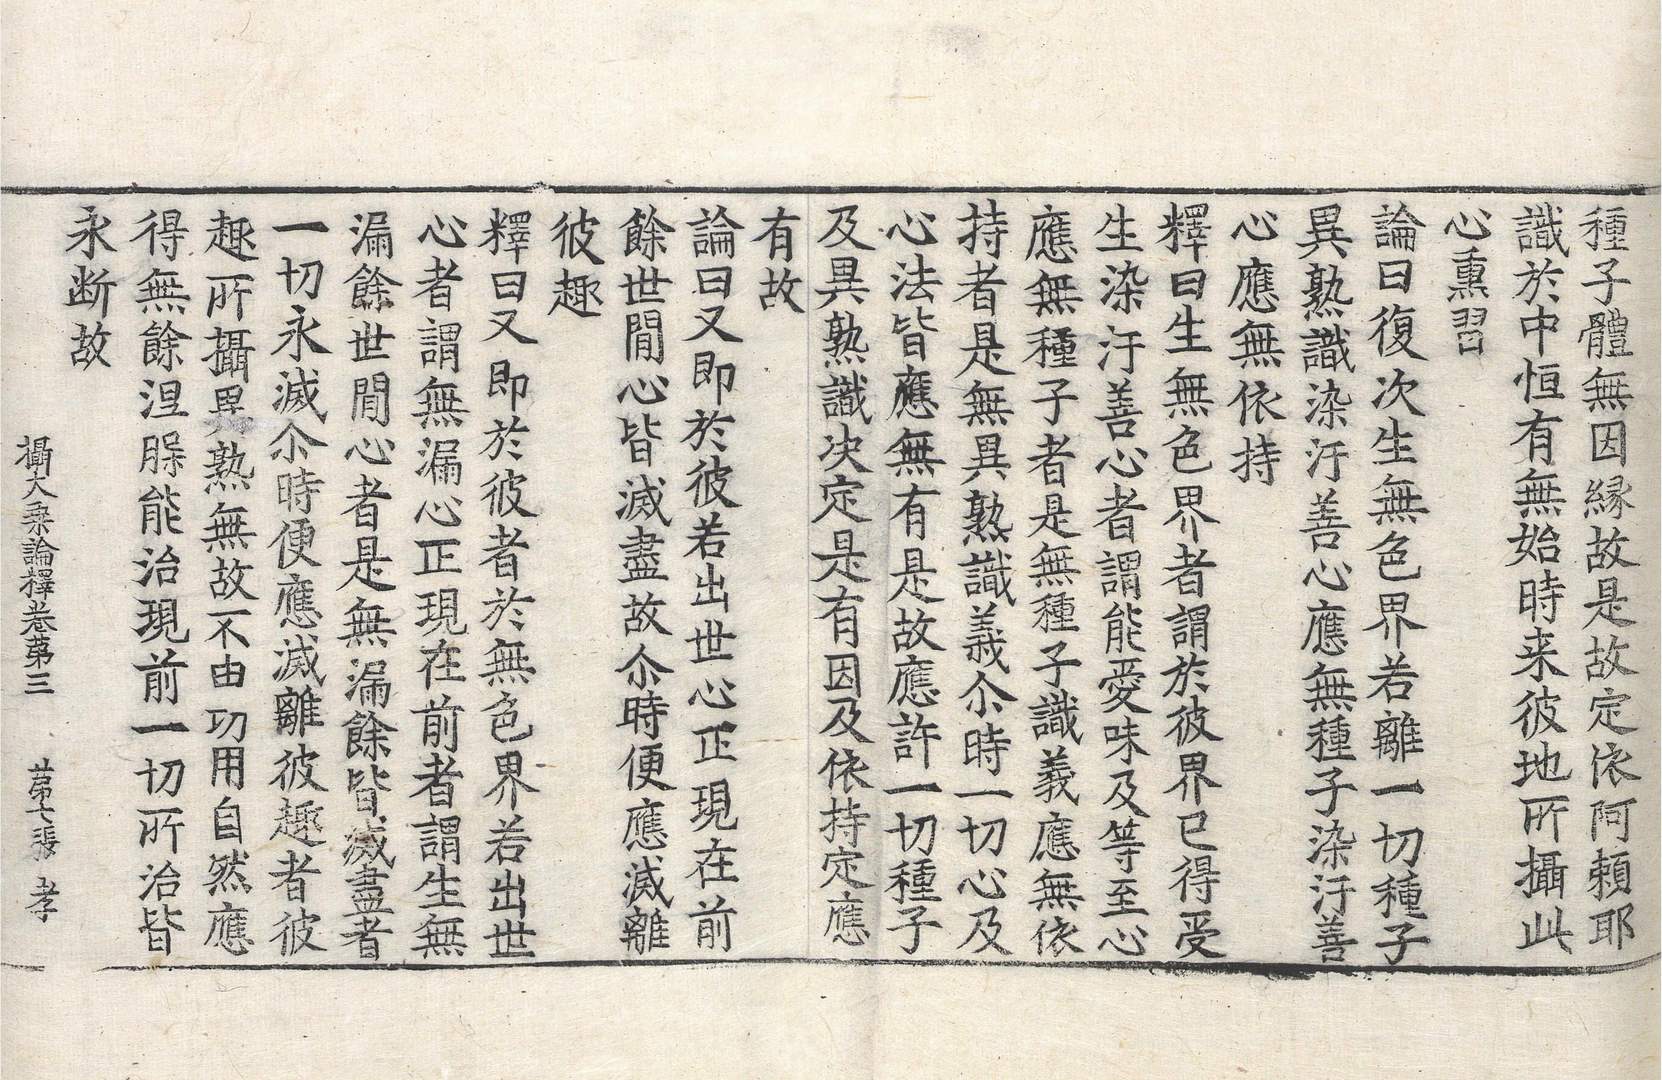 種子體無因縁故是故定依阿頼耶
識於中恒有無始時来彼地所攝此
心熏習
論曰復次生無色界若離一切種子
異熟識染汙善心應無種子染汙善
心應無依持
釋曰生無色界者謂於彼界已得受
生染汙善心者謂能愛味及等至心
應無種子者是無種子識義應無依
持者是無異熟識義尒時一切心及
心法皆應無有是故應許一切種子
及異熟識决定是有因及依持定應
有故
論曰又即於彼若出世心正現在前
餘世間心皆滅盡故尒時便應滅離
彼趣
釋曰又即於彼者於無色界若出世
心者謂無漏心正現在前者謂生無
漏餘世間心者是無漏餘皆滅盡者
一切永滅尒時便應滅離彼趣者彼
趣所攝異熟無故不由功用自然應
得無餘涅槃能治現前一切所治皆
永断故
攝大乗論釋卷第三　第七張　孝